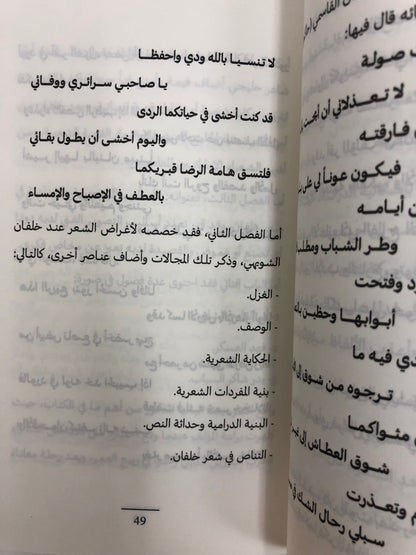 لا تنسيا بالله ودي واحفظا
يا صاحبي سرائري ووفائي
قد كنت أخشى في حياتكما الردى
واليوم أخشى أن يطول بقائي
فلتسق هامة الرضا قبريكما
بالعطف في الإصباح والإمساء
أما الفصل الثاني، فقد خصصه لأغراض الشعر عند خلفان
الشويهي، وذكر تلك المجالات وأضاف عناصر أخرى، كالتالي:
- الغزل.
- الوصف.
- الحكاية الشعرية.
- بنية المفردات الشعرية.
- البنية الدرامية وحداثة النص.
- التناص في شعر خلفان.
49
القاسمي
ائه قال فيها:
صولة
لا تعذلاني أن
فارقته
فيكون عوناً لي على
أيامه
وطر الشباب ومطلب
ود وفتحت
أبوابها وحظين
دي فيه ما
ترجوه من شوق
مثواكما
شوق العطاش إلى
م وتعذرت
سبلي رحال الشك في